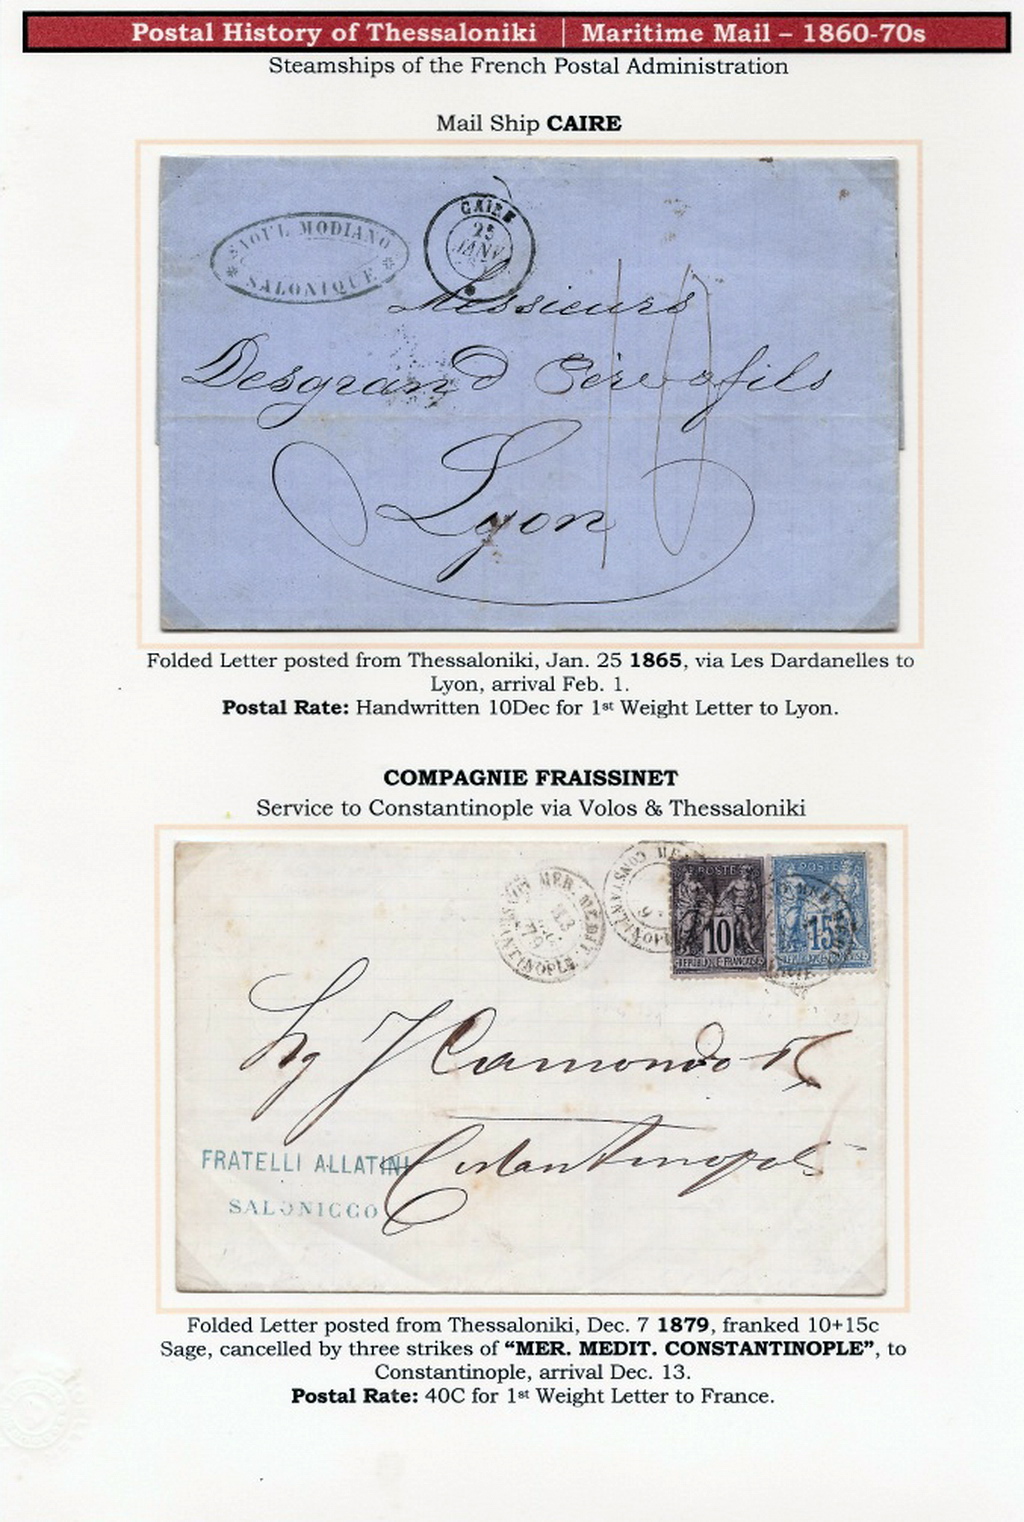 Postal History of Thessaloniki | Maritime Mail – 1860-70s
Steamships of the French Postal Administration
Mail Ship CAIRE
SAOUL MODIANO
SALONIQUE
CAIRE
25
JANV
Messieurs
Desgrand Père & fils
Lyon
10
Folded Letter posted from Thessaloniki, Jan. 25 1865, via Les Dardanelles to
Lyon, arrival Feb. 1.
Postal Rate: Handwritten 10Dec for 1st Weight Letter to Lyon.
COMPAGNIE FRAISSINET
Service to Constantinople via Volos & Thessaloniki
MER. MEDIT.
13
79
CONSTANTINOPLE
POSTES
10
REPUBLIQUE FRANCAISE
POSTES
15
J Camondo
Costantinopoli
FRATELLI ALLATINI
SALONICCO
Folded Letter posted from Thessaloniki, Dec. 7 1879, franked 10+15c
Sage, cancelled by three strikes of “MER. MEDIT. CONSTANTINOPLE”, to
Constantinople, arrival Dec. 13.
Postal Rate: 40C for 1st Weight Letter to France.